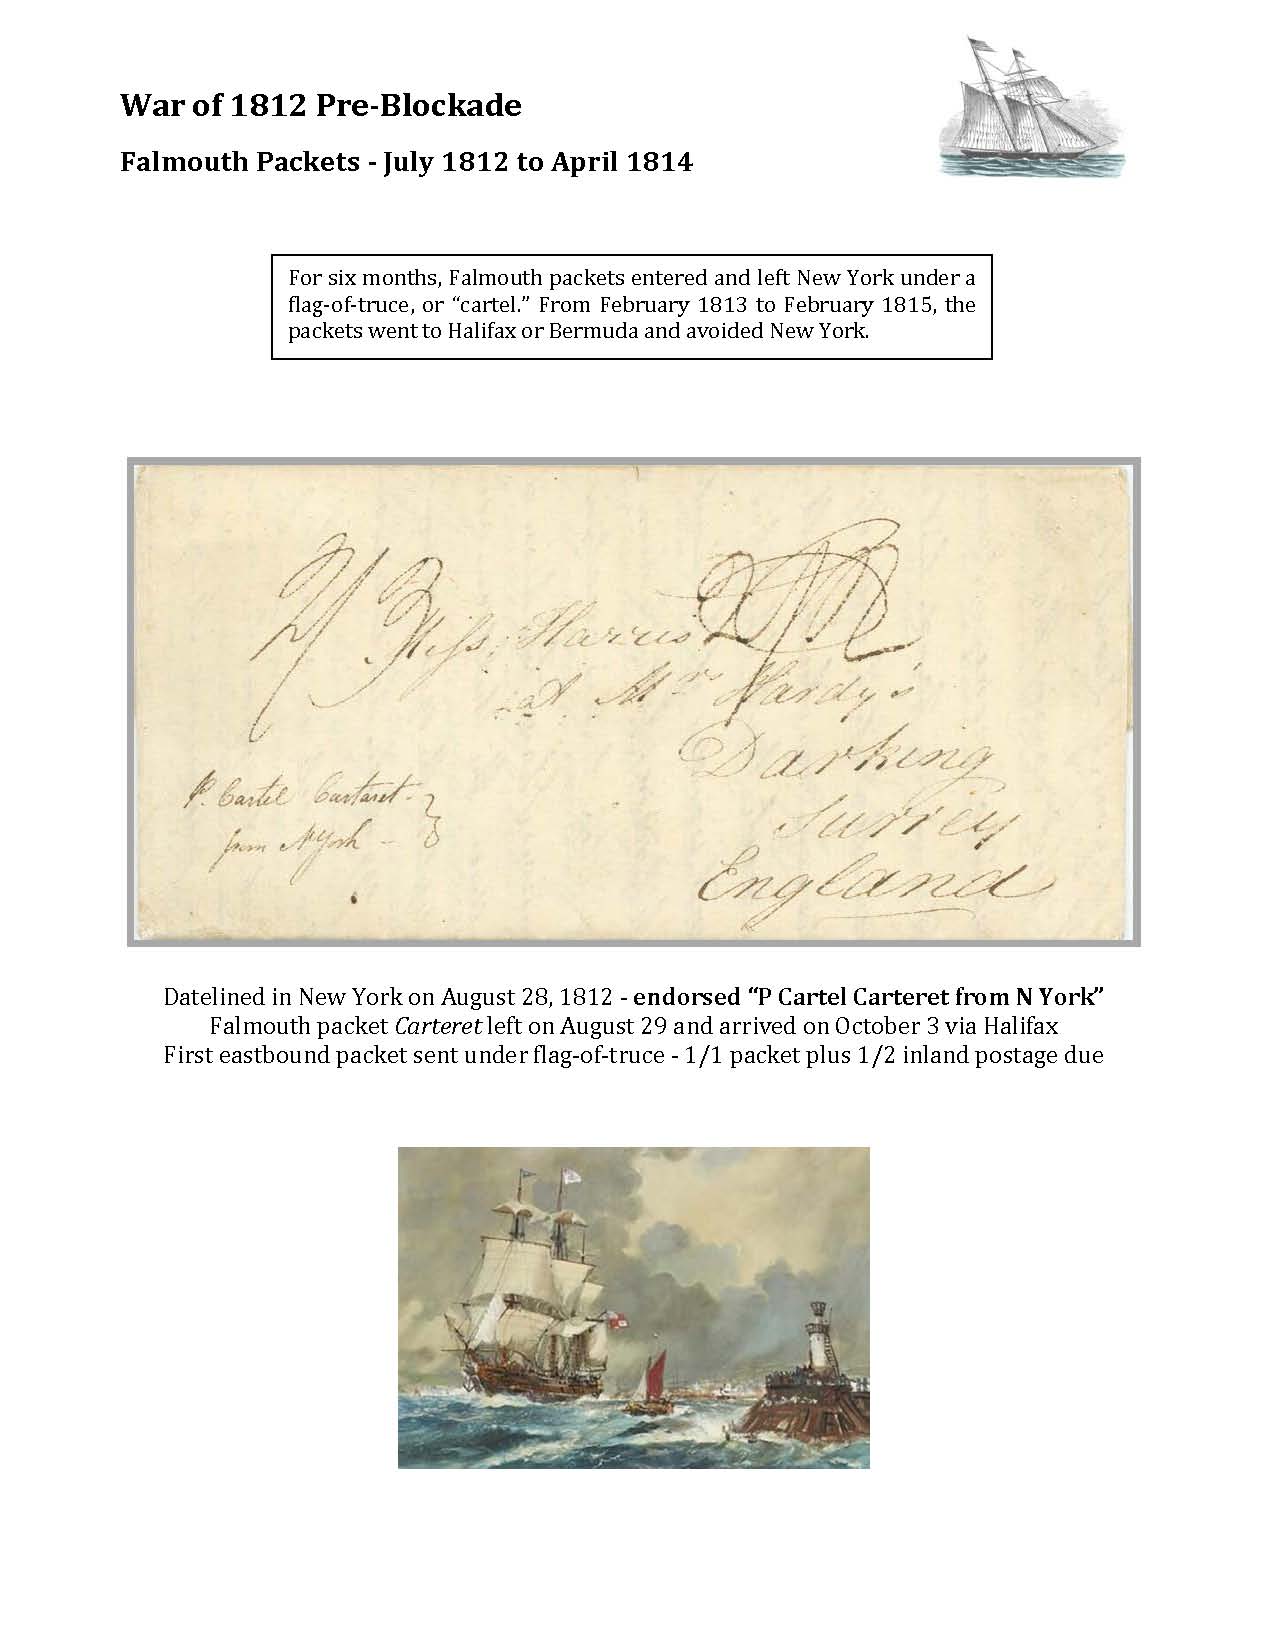 War of 1812 Pre-Blockade
Falmouth Packets - July 1812 to April 1814
For six months, Falmouth packets entered and left New York under a
flag-of-truce, or “cartel.” From February 1813 to February 1815, the
packets went to Halifax or Bermuda and avoided New York.
2/3
Miss Harris
at Mrs Hardy's
Darking
Surrey
England
P. Cartel Cartaret
from N York
Datelined in New York on August 28, 1812 - endorsed “P Cartel Carteret from N York”
Falmouth packet Carteret left on August 29 and arrived on October 3 via Halifax
First eastbound packet sent under flag-of-truce - 1/1 packet plus 1/2 inland postage due